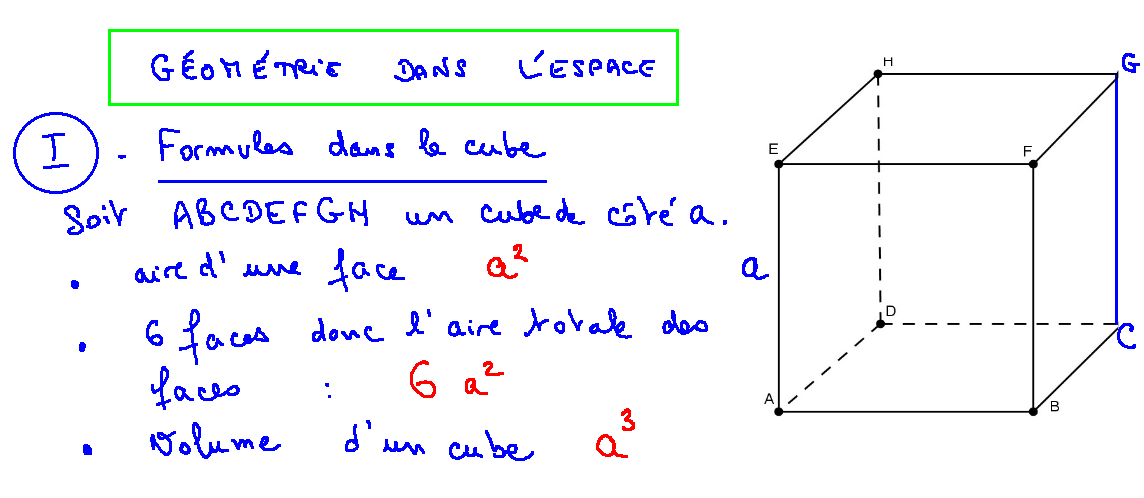 GÉOMÉTRIE DANS L'ESPACE
I - Formules dans le cube
Soit ABCDEFGH un cube de côté a.
• aire d'une face a²
• 6 faces donc l'aire totale des
faces : 6 a²
• Volume d'un cube a³
H
G
E
F
a
D
C
A
B